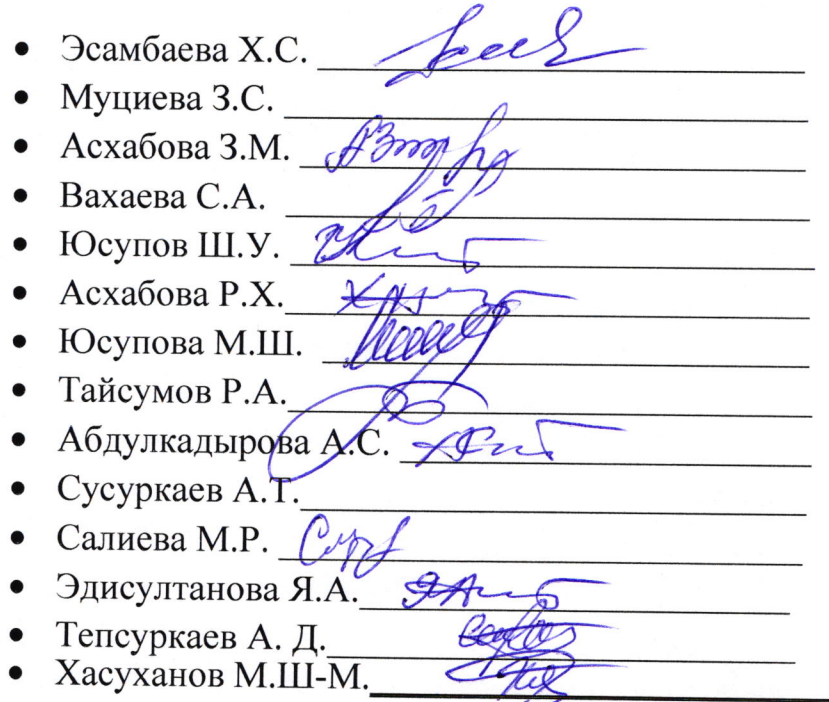 • Эсамбаева Х.С.
• Муциева З.С.
• Асхабова З.М.
• Вахаева С.А.
• Юсупов Ш.У.
• Асхабова Р.Х.
• Юсупова М.Ш.
• Тайсумов Р.А.
• Абдулкадырова А.С.
• Сусуркаев А.Т.
• Салиева М.Р.
• Эдисултанова Я.А.
• Тепсуркаев А. Д.
• Хасуханов М.Ш-М.